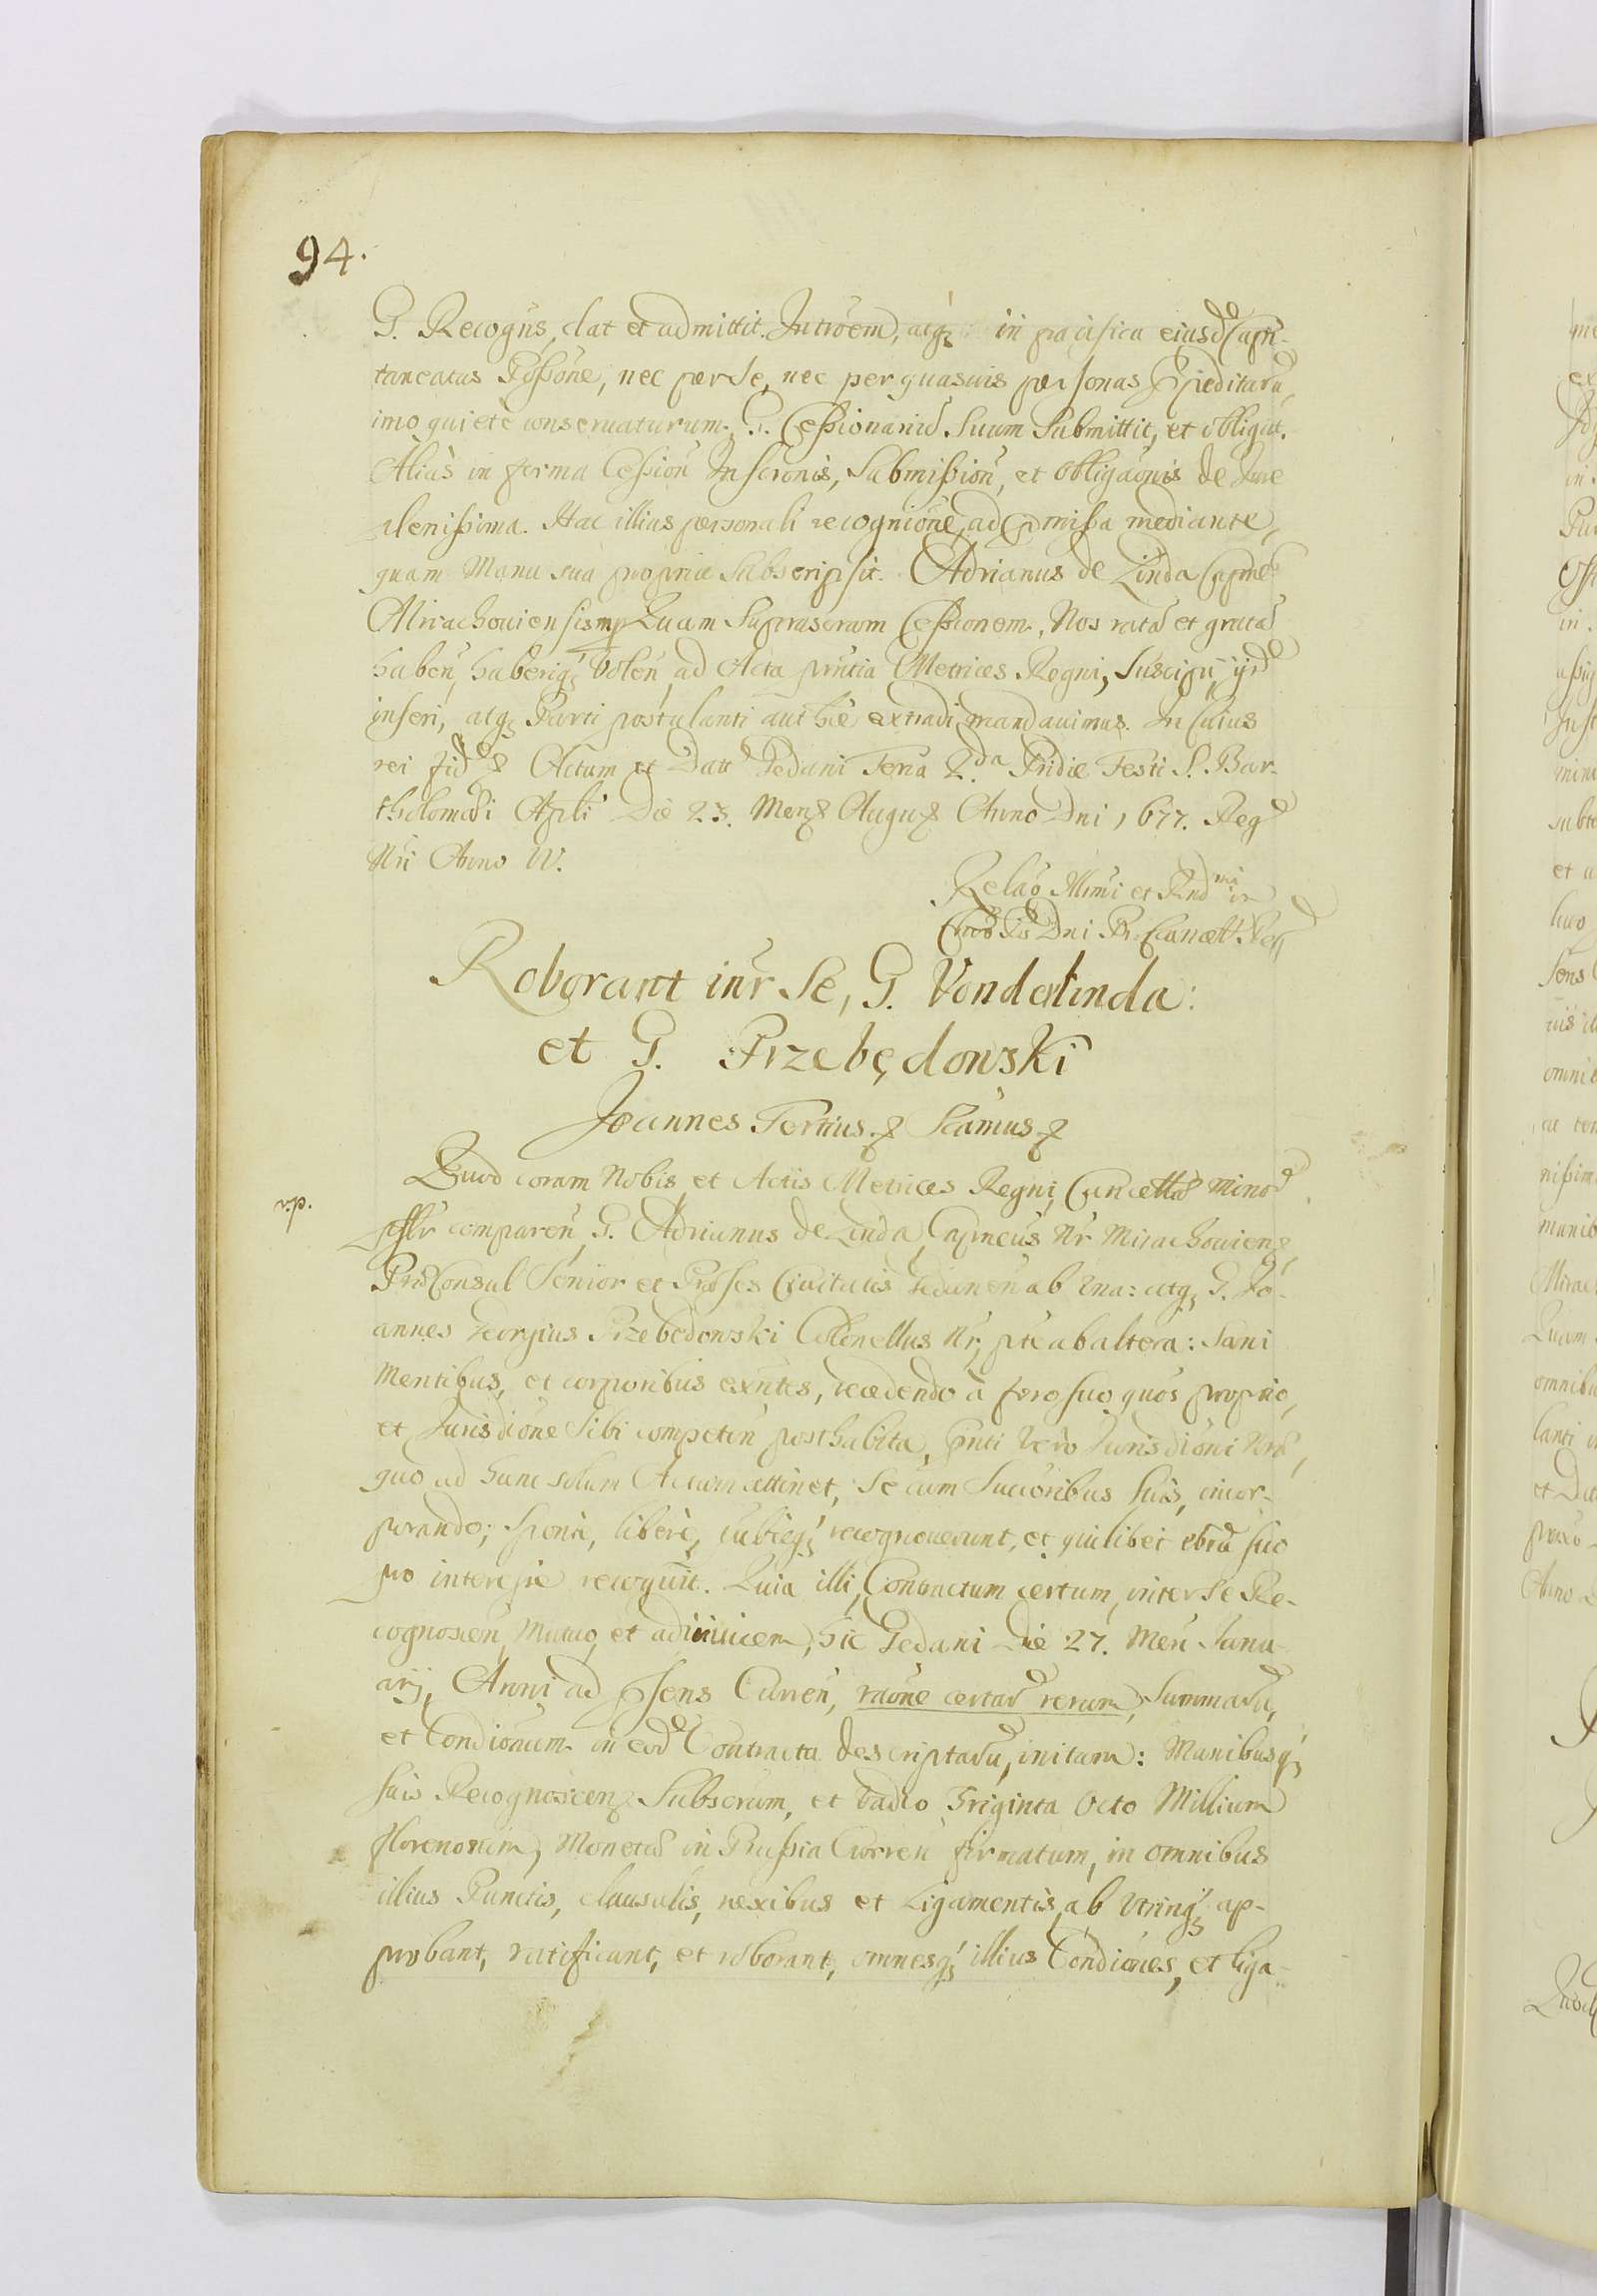 94.
G. Recogns, dat et admittit. Intrõem, atq; in pacifica eiusd Capi-
taneatus Possõne, nec per se, nec per quasuis personas impeditarũ,
imo quietè conseruaturum. G. Cessionariũ suum submittit, et obligat.
Alias in forma Cession Inscrõnis, Submission, et Obligaõnis de Iure
plenissima. Hac illius personali recogniõne, ad præmissa mediante,
quam Manu sua propria Subscripsit. Adrianus de Linda Capneus
Mirachouiensis mp Quam suprascram Cessionem, Nos ratã et gratã
haben, haberiq; volen, ad Acta prntia Metrices Regni, suscipi, ijsd
inseri, atq; Parti postulanti auth̃e extradi mandauimus. In Cuius
rei fid Actum et Datt Gedani Feria 2.da Pridie Festi S. Bar-
tholomæi Apli Die 23. Mens Augu Anno Dni 1677. Reg
Nri Anno IV.
Relaõ Illmi et Rndmi in
Chro Pris Dni Pro Cancell. Reg
Roborant intr Se, G. Vonderlinda:
et G. Przebędowski
Joannes Tertius. Scimus.
Quod coram Nobis, et Actis Metrices Regni, Cancellæ minor
v.p.
psslr comparen, G. Adrianus de Linda, Capneus Nr Mirachouien,
PræConsul Senior et Præses Ciuitatis Gedanen ab vna: atq; G. Jo-
annes Georgius Przebędowski Colonellus Nr, pte ab altera: Sani
mentibus, et corporibus exntes, recedendo à foro suo quõs proprio,
et Jurisdiõne sibi competen posthabita, prnti verò Jurisdiõni Nræ,
quo ad hunc solum Actum attinet, se cum Succõribus suis, incor-
porando; sponte, liberè, publicq; recognouerunt, et quilibet eorũ suo
pro interesse recognuit. Quia illi, Contractum certum, inter se Re-
cognoscen, mutuo, et ad inuicem, hic Gedani Die 27. Men Janu-
arij, Anni ad præsens Curren, raõne certar rerum, Summarũ,
et Condiõnum in eod Contractu descriptarũ, initum: Manibusq;
suis Recognoscen Subscrum, et vadio Triginta Octo Millium
florenorum, Monetæ in Prussia Curren firmatum, in omnibus
illius Punctis, clausulis, nexibus et Ligamentis, ab vtrinq; ap-
probant, ratificant, et roborant, omnesq; illius Condiõnes, et liga-